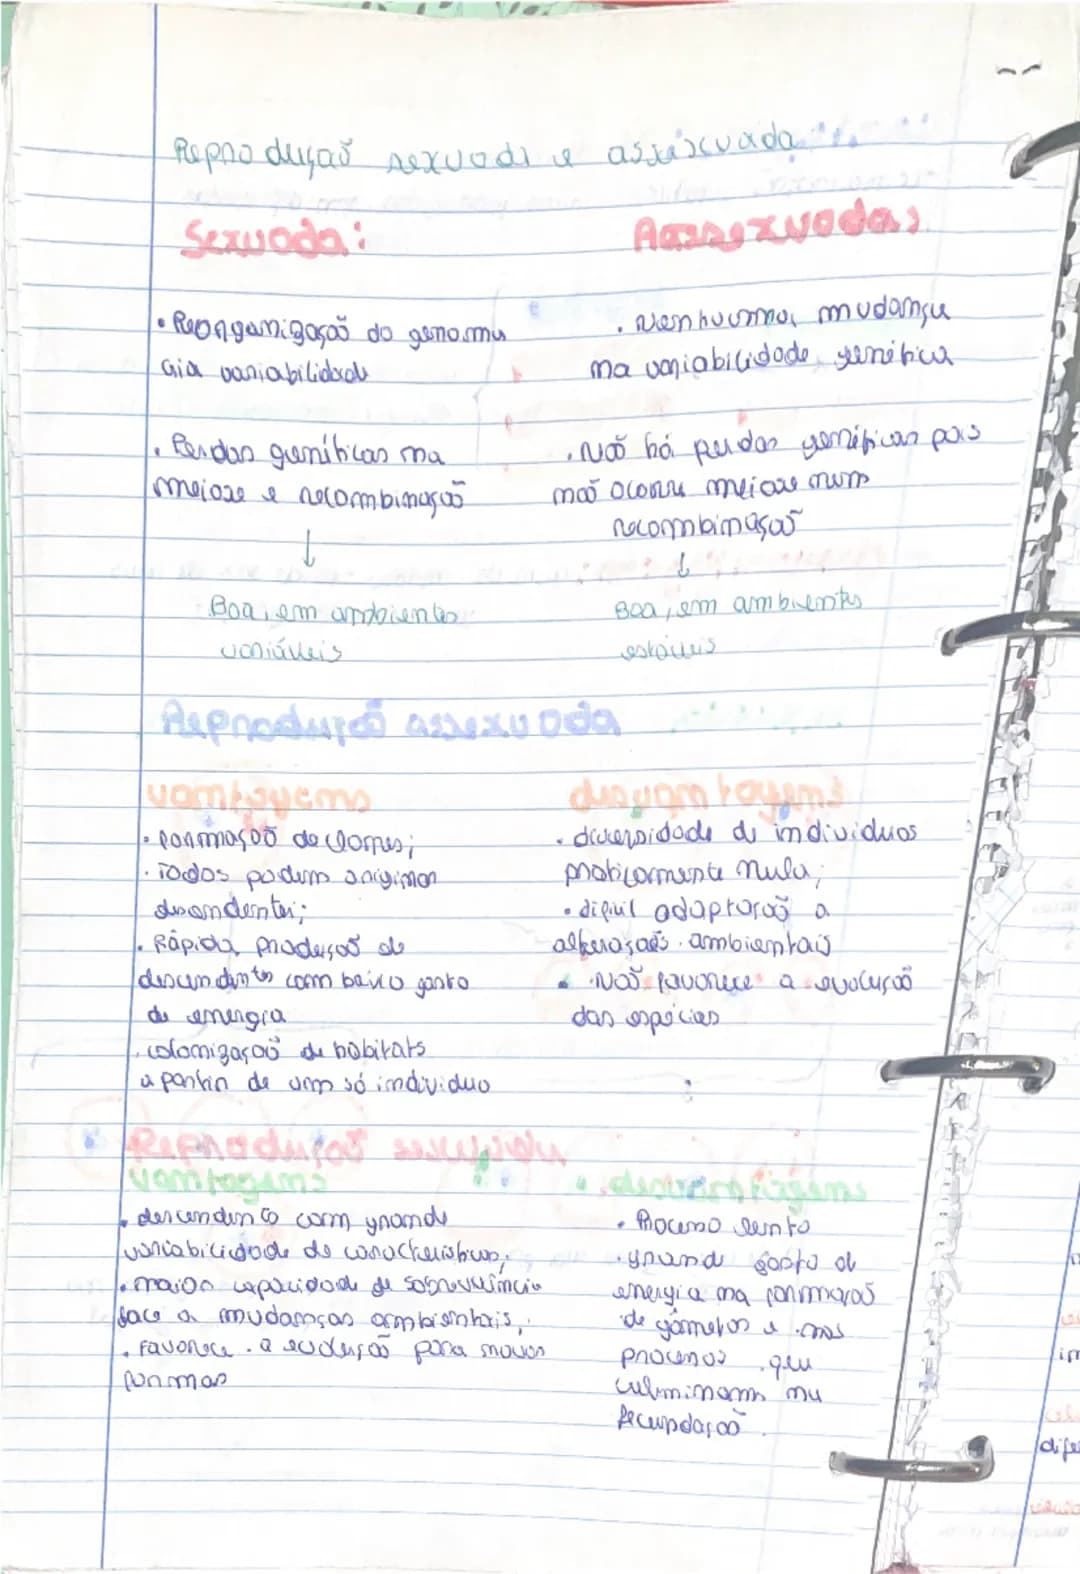 Reprodução sexuada e assexuada
Sexuada:
Assexuada:
• Reorganização do genoma
cria variabilidade
• Nenhuma mudança
na variabilidade genética
• Perdas genéticas na
meiose e recombinação
↓
Boa, em ambientes
variáveis
• Não há perdas genéticas pois
não ocorre meiose nem
recombinação
↓
Boa, em ambientes
estáveis
Reprodução assexuada
vantagens
• formação de clones;
• Todos podem originar
descendentes;
• Rápida produção de
descendentes com baixo gasto
de energia
• colonização de habitats
a partir de um só individuo
desvantagens
• diversidade de individuos
praticamente nula;
• dificil adaptação a
alterações ambientais
• Não favorece a evolução
das espécies
Reprodução sexuada
vantagens
• descendentes com grande
variabilidade de caracteristicas;
• maior capacidade de sobrevivência
face a mudanças ambientais;
• Favorece a evolução para novas
formas
desvantagens
• Processo lento
• grande gasto de
energia na formação
de gâmetas e nos
processos que
culminam na
fecundação.